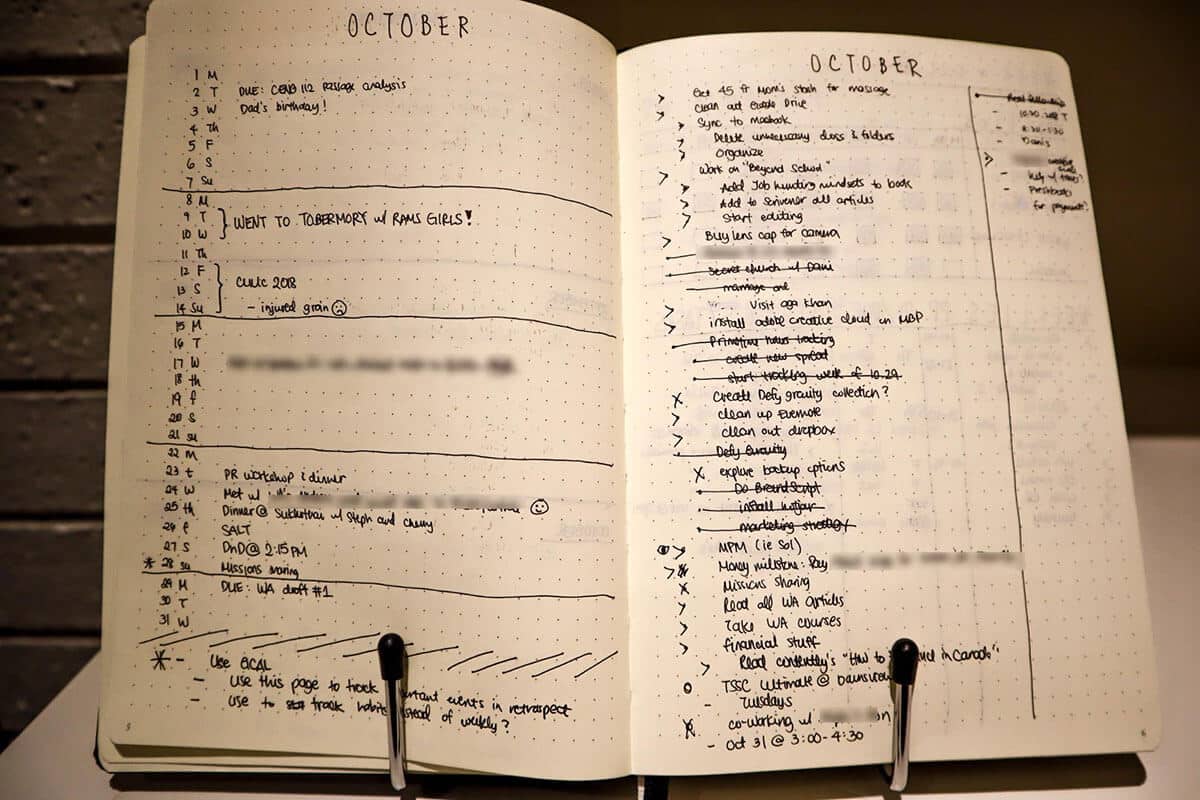 OCTOBER
1 M
2 T DUE: CENG 112 Passage analysis
3 W Dad's birthday!
4 Th
5 F
6 S
7 Su
8 M
9 T WENT TO TOBERMORY w/ RAMS GIRLS!
10 W
11 Th
12 F
13 S CUUC 2018
14 Su - injured groin
15 M
16 T
17 W
18 th
19 f
20 S
21 su
22 M
23 t PR workshop & dinner
24 W Met w/
25 th Dinner @ Sukhothai w/ Steph and Cherry
26 f SALT
27 S DnD @ 2:15 PM
* 28 su Missions sharing
29 M DUE: WA draft #1
30 T
31 W
* - Use GCAL
- Use this page to track events in retrospect
- Use to track habits of weekly?
OCTOBER
> Get 45 fr Mom's stash for massage
> Clean out Google Drive
> Sync to macbook
> Delete unnecessary docs & folders
> Organize
> Work on "Beyond School"
> Add Job hunting mindsets to book
> Add to Scrivener all articles
> Start editing
> Buy lens cap for camera
Secret church w/ Dani
marriage one
> Visit aga khan
> install adobe creative cloud on MBP
tracking
create new spread
start tracking week of 10.29
x Create Defy gravity collection?
> clean up Evernote
> clean out dropbox
Defy Gravity
x explore backup options
Do BrandScript
install hotjar
marketing strategy
> MPM (ie Sol)
> Money milestone: Pay
x Missions sharing
> Read all WA articles
> Take WA courses
> financial stuff
> Read contently's "How to in Canada"
o TSSC Ultimate @
- Tuesdays
x co-working w/
- Oct 31 @ 3:00-4:30
- Danis
- Help w/
- Freshbooks
for payments?
5
6